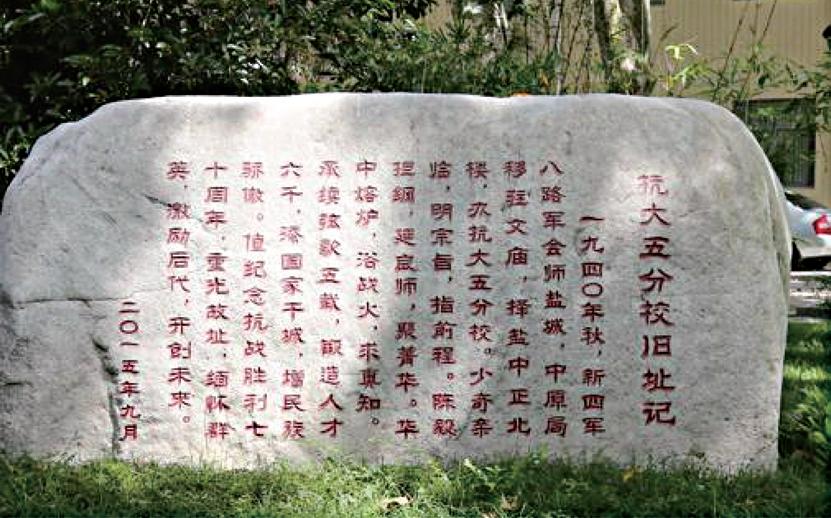 抗大五分校旧址记
一九四〇年秋，新四军
八路军会师盐城，中原局
移驻文庙，择盐中正北
楼，办抗大五分校。少奇亲
临，明宗旨，指前程。陈毅
担纲，延良师，聚菁华。华
中熔炉，浴战火，求真知。
承续弦歌五载，锻造人才
六千，添国家干城，增民族
骄傲。值纪念抗战胜利七
十周年，重光故址，缅怀群
英，激励后代，开创未来。
二〇一五年九月